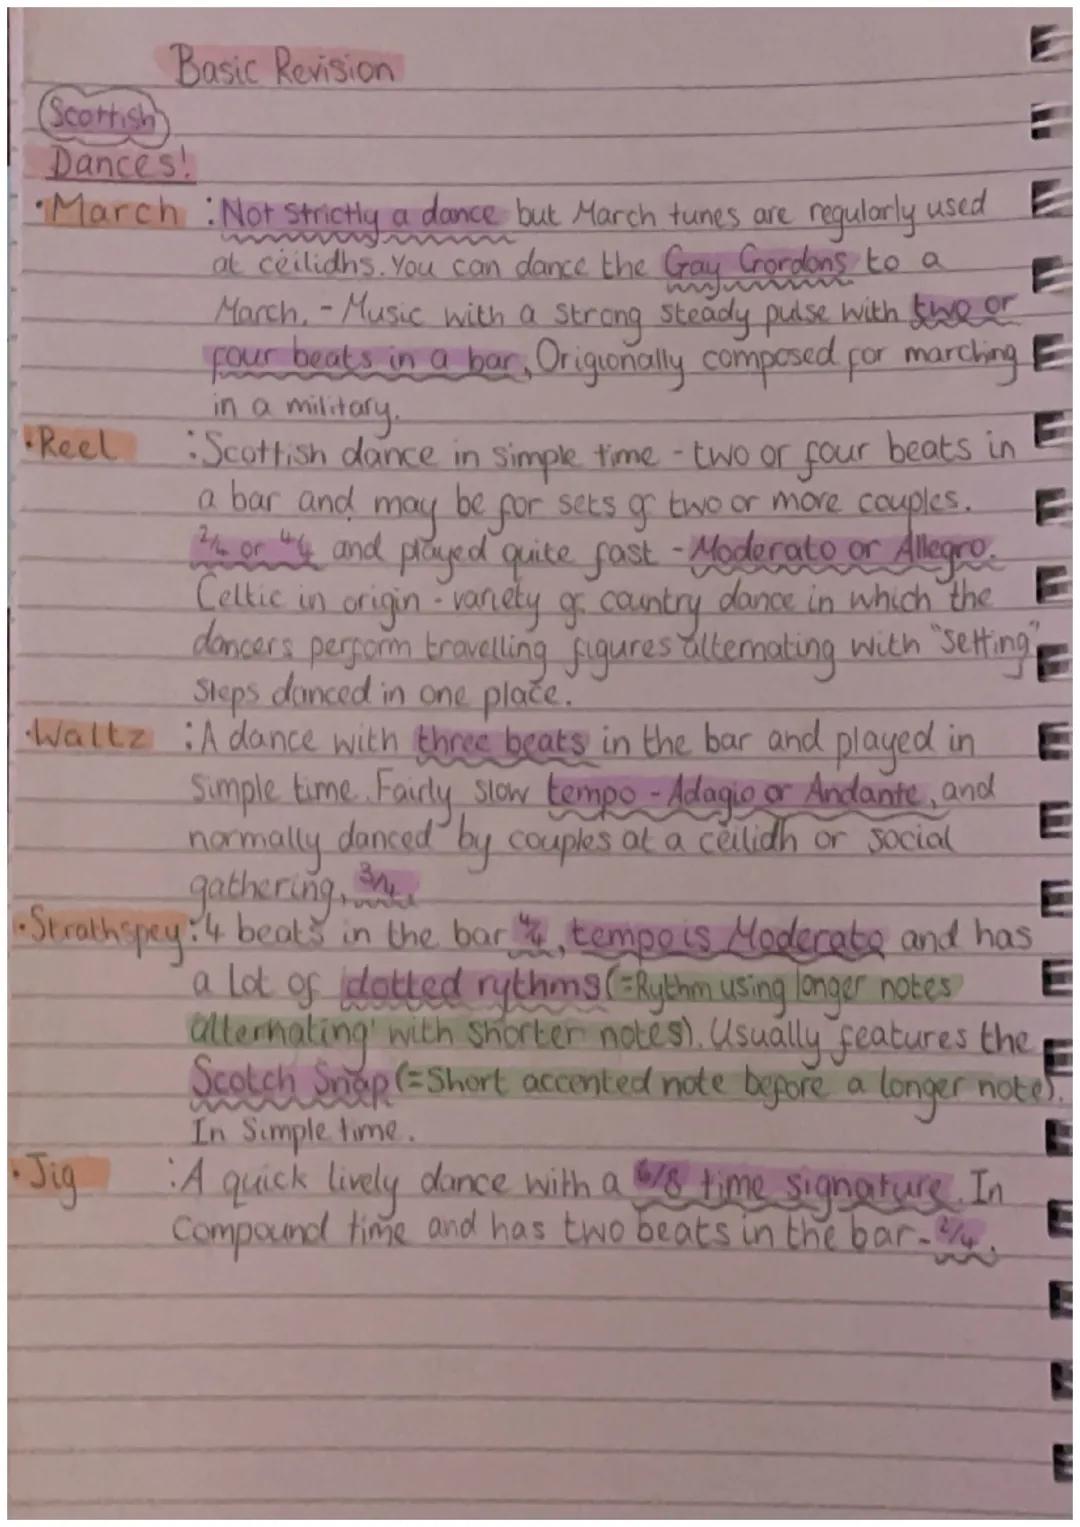 Basic Revision
Scottish
Dances!
•March :Not strictly a dance but March tunes are regularly used
at céilidhs. You can dance the Gay Gordons to a
March. - Music with a strong steady pulse with two or
four beats in a bar, Origionally composed for marching
in a military.
•Reel :Scottish dance in simple time - two or four beats in
a bar and may be for sets of two or more couples.
2/4 or 4/4 and played quite fast - Moderato or Allegro.
Celtic in origin - variety of country dance in which the
dancers perform travelling figures alternating with "setting"
steps danced in one place.
•Waltz :A dance with three beats in the bar and played in
simple time. Fairly slow tempo - Adagio or Andante, and
normally danced by couples at a céilidh or social
gathering. 3/4.
•Strathspey:4 beats in the bar 4/4, tempo is Moderato and has
a lot of dotted rythms (=Rythm using longer notes
alternating with shorter notes). Usually features the
Scotch Snap (=Short accented note before a longer note).
In Simple time.
•Jig :A quick lively dance with a 6/8 time signature. In
Compound time and has two beats in the bar - 2/4.